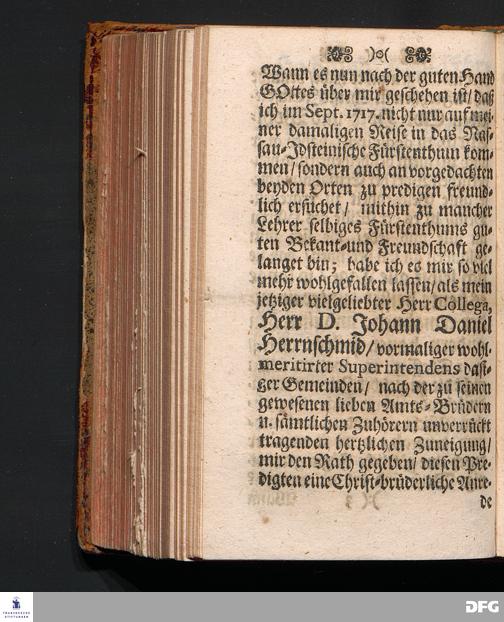 )o(
Wann es nun nach der guten Hand
GOttes über mir geschehen ist/ daß
ich im Sept. 1717. nicht nur auf mei-
ner damaligen Reise in das Nas-
sau-Idsteinische Fürstenthum kom-
men/ sondern auch an vorgedachten
beyden Orten zu predigen freund-
lich ersuchet/ mithin zu mancher
Lehrer selbiges Fürstenthums gu-
ten Bekant-und Freundschaft ge-
langet bin; habe ich es mir so viel
mehr wohlgefallen lassen/ als mein
jetziger vielgeliebter Herr Collega,
Herr D. Johann Daniel
Herrnschmid/ vormaliger wohl-
meritirter Superintendens dasi-
ger Gemeinden/ nach der zu seinen
gewesenen lieben Amts-Brüdern
u. sämtlichen Zuhörern unverrückt
tragenden hertzlichen Zuneigung/
mir den Rath gegeben/ diesen Pre-
digten eine Christ-brüderliche Anre-
de
FRANCKESCHE
STIFTUNGEN
DFG